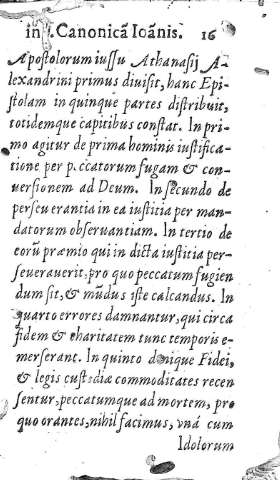 in I. Canonicā Ioānis. 16
Apostolorum iussu Athanasij A-
lexandrini primus diuisit, hanc Epi-
stolam in quinque partes distribuit,
totidemque capitibus constat. In pri-
mo agitur de prima hominis iustifica-
tione per p.ccatorum fugam & con-
uersionem ad Deum. In secundo de
perseuerantia in ea iustitia per man-
datorum obseruantiam. In tertio de
eorū præmio qui in dicta iustitia per-
seuerauerit, pro quo peccatum fugien
dum sit, & mūdus iste calcandus. In
quarto errores damnantur, qui circa
fidem & charitatem tunc temporis e-
merserant. In quinto denique Fidei,
& legis custodiæ commoditates recen
sentur, peccatumque ad mortem, pro
quo orantes, nihil facimus, vnā cum
Idolorum